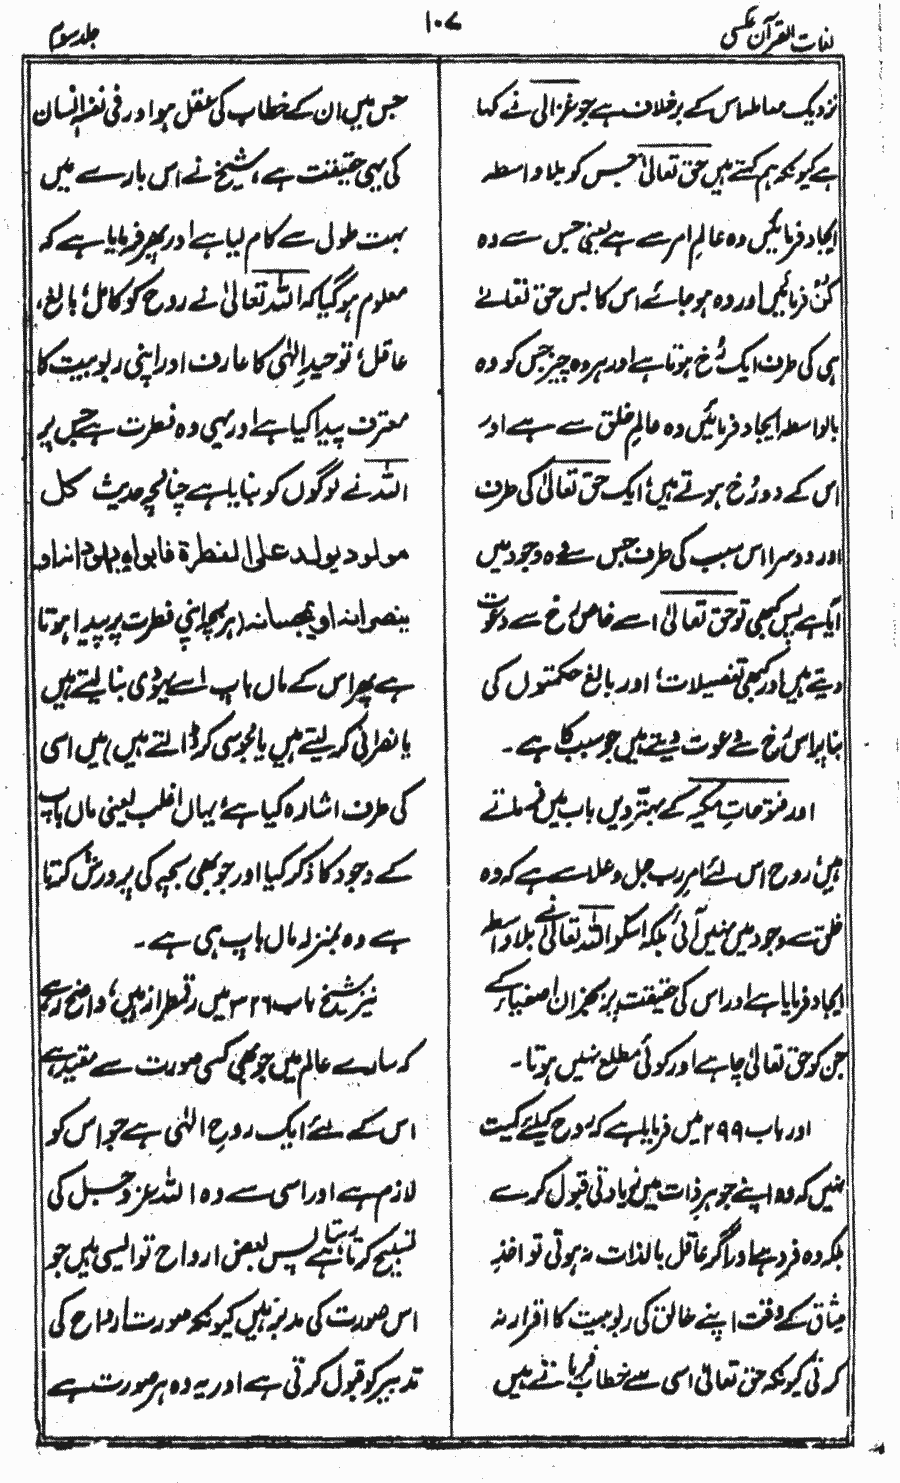 لغات القرآن عکسی
۱۰۷
جلد سوم
نزدیک معاملہ اس کے برخلاف ہے جو غزالی نے کہا
ہے کیونکہ ہم کہتے ہیں حق تعالیٰ جس کو بلا واسطہ
ایجاد فرمائیں وہ عالمِ امر سے ہے یعنی جس سے وہ
کُن فرمائیں اور وہ ہو جائے اس کا بس حق تعالےٰ
ہی کی طرف ایک رُخ ہوتا ہے اور ہر وہ چیز جس کو وہ
بالواسطہ ایجاد فرمائیں وہ عالمِ خلق سے ہے اور
اس کے دو رُخ ہوتے ہیں، ایک حق تعالیٰ کی طرف
اور دوسرا اس سبب کی طرف جس سے وہ وجود میں
آیا ہے پس کبھی تو حق تعالیٰ اسے خاص رُخ سے دعوت
دیتے ہیں اور کبھی تفصیلات، اور بالغ حکمتوں کی
بنا پر اس رُخ سے دعوت دیتے ہیں جو سبب کا ہے۔
اور فتوحاتِ مکیہ کے بہترویں باب میں فرماتے
ہیں، روح اس لئے امرِ رب جل و علا سے ہے کہ وہ
خلق سے وجود میں نہیں آئی، بلکہ اسکو اللہ تعالیٰ نے بلا واسطہ
ایجاد فرمایا ہے اور اس کی حقیقت پر بجز ان اصفیاء کے
جن کو حق تعالیٰ چاہے اور کوئی مطلع نہیں ہوتا۔
اور باب ۲۹۹ میں فرمایا ہے کہ روح کیلئے کمیت
نہیں کہ وہ اپنے جوہرِ ذات میں زیادتی قبول کرے
بلکہ وہ فرد ہے اور اگر عاقل بالذات نہ ہوتی تو اخذِ
میثاق کے وقت اپنے خالق کی ربوبیت کا اقرار نہ
کرتی کیونکہ حق تعالیٰ اسی سے خطاب فرماتے ہیں
جس میں ان کے خطاب کی عقل ہو اور فی نفسہٖ انسان
کی یہی حقیقت ہے، شیخ نے اس بارے میں
بہت طول سے کام لیا ہے اور پھر فرمایا ہے کہ
معلوم ہو گیا کہ اللہ تعالیٰ نے روح کو کامل، بالغ،
عاقل، توحیدِ الٰہی کا عارف اور اپنی ربوبیت کا
معترف پیدا کیا ہے اور یہی وہ فطرت ہے جس پر
اللہ نے لوگوں کو بنایا ہے چنانچہ حدیث کل
مولود یولد علی الفطرۃ فابواہ یھودانہ او
ینصرانہ او یمجسانہ (ہر بچہ اپنی فطرت پر پیدا ہوتا
ہے پھر اس کے ماں باپ اسے یہودی بنا لیتے ہیں
یا نصرانی کر لیتے ہیں یا مجوسی کر ڈالتے ہیں) میں اسی
کی طرف اشارہ کیا ہے، یہاں اغلب یعنی ماں باپ
کے وجود کا ذکر کیا اور جو بھی بچے کی پرورش کرتا
ہے وہ بمنزلہ ماں باپ ہی ہے۔
نیز شیخ باب ۳۲۶ میں رقمطراز ہیں، واضح رہے
کہ سارے عالم میں جو بھی کسی صورت سے مقید ہے
اس کے لئے ایک روحِ الٰہی ہے جو اس کو
لازم ہے اور اسی سے وہ اللہ عز و جل کی
تسبیح کرتا رہتا ہے پس بعض ارواح تو ایسی ہیں جو
اس صورت کی مدبر ہیں کیونکہ صورت ارواح کی
تدبیر کو قبول کرتی ہے اور یہ وہ ہر صورت ہے